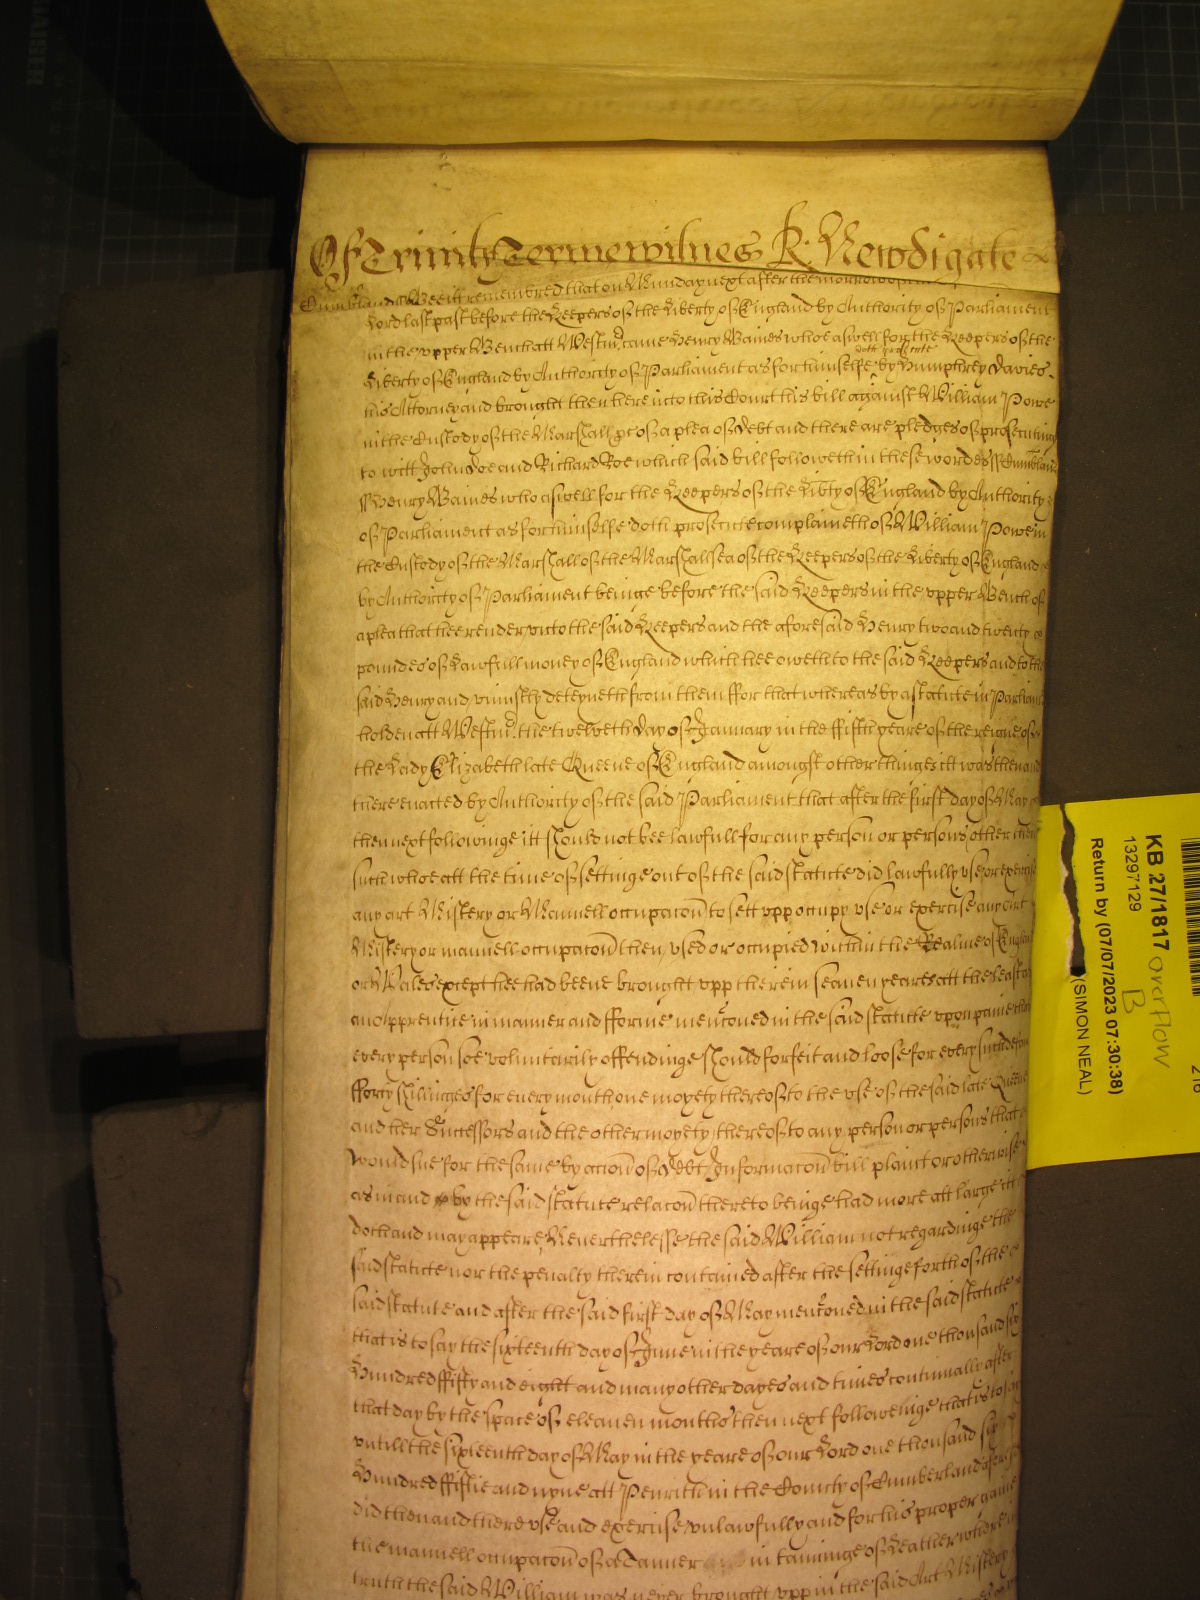 Of Trinity Terme witnes R: Newdigate
Cumberland ss Bee it remembred that on Munday next after the morrow of
Lord last past before the Keepers of the Liberty of England by Authority of Parliament
in the upper Bench att Westm̃ came Henry Baines whoe aswell for the Keepers of the
doth prosecute
Liberty of England by Authority of Parliament as for himselfe by Humphrey Davies
his Attorney and brought then here into this Court his bill against William Powe
in the Custody of the Marshall &c of a plea of Debt and there are pledges of prosecuting
to witt John Doe and Richard Roe which said bill followeth in these wordes ss Cumbland
ss Henry Baines who aswell for the Keepers of the Libty of England by Authority
of Parliament as for himselfe doth prosecute complaineth of William Powe in
the Custody of the Marshall of the Marshallsea of the Keepers of the Liberty of England
by Authority of Parliament beinge before the said Keepers in the upper Bench of
a plea that hee render unto the said Keepers and the aforesaid Henry two and twenty
poundes of Lawfull money of England which hee oweth to the said Keepers and to the
said Henry and uniustly deteyneth from them ffor that whereas by a statute in Parliam
holden att Westm̃ the twelveth day of January in the ffifth yeare of the reigne of
the Lady Elizabeth late Queene of England amongst other thinges itt was then and
there enacted by Authority of the said Parliament that after the first day of May
then next followinge itt should not bee lawfull for any person or persons other then
such whoe att the time of settinge out of the said statute did lawfully use or exercise
any art Mistery or Manuell occupacoñ to sett upp occupy use or exercise any Art
Mistery or manuell occupacoñ then used or occupied within the Realme of England
or Wales except hee had beene brought upp therein seaven yeares att the least as
an Apprentice in manner and fforme menc̃oned in the said statute upon paine that
every person soe voluntarily offendinge should forfeit and loose for every such defau
fforty shillinges for every month one moyety thereof to the use of the said late Queene
and her Successors and the other moyety thereof to any person or persons that
would sue for the same by acc̃on of Debt Informac̃on bill plaint or otherwise
as in and by the said statute relac̃on thereto beinge had more att large itt
doth and may appeare Neverthelesse the said William not regardinge the
said statute nor the penalty therein contained after the settinge forth of the
said statute and after the said first day of May menc̃oned in the said statute
that is to say the sixteenth day of June in the yeare of our Lord one thousand six
Hundred ffifty and eight and many other dayes and times continually after
that day by the space of eleaven months then next followeinge that is to say
untill the sixteenth day of May in the yeare of our Lord one thousand six
Hundred ffiftie and nyne att Penrith in the County of Cumberland aforesd
did then and there use and exercise unlawfully and for his proper gaine
the manuell occupac̃on of a Tanner in tanninge of Leather where in
truth the said William was never brought upp in the said Art Mistery
KB 27/1817 overflow
13297129 B
Return by (07/07/2023 07:30:38)
(SIMON NEAL)